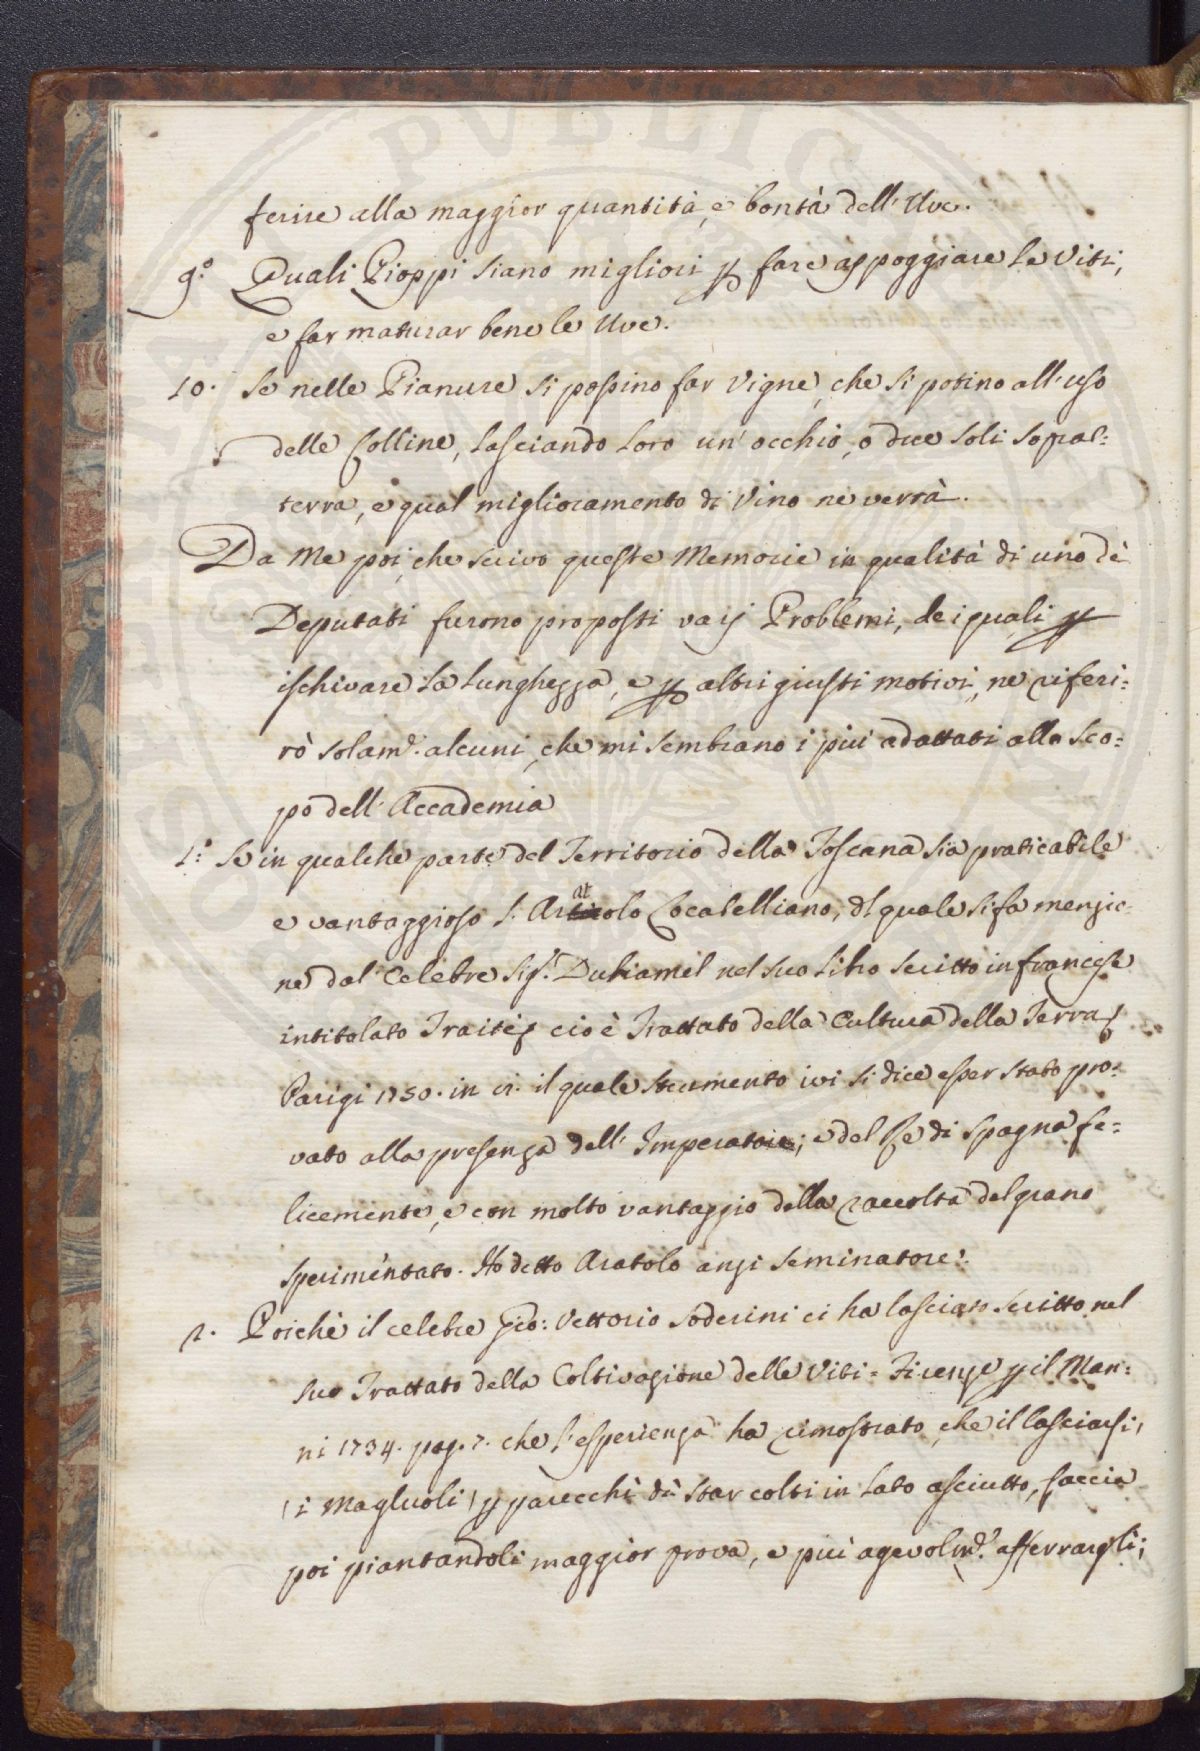 ferire alla maggior quantità, e bontà dell'Uve.
9.° Quali Pioppi siano migliori p fare appoggiare le Viti,
e far maturar bene le Uve.
10. Se nelle Pianure si possino far Vigne, che si potino all'uso
delle Colline, lasciando loro un'occhio, o due soli sopra=
terra, e qual miglioramento di Vino ne verrà.
Da Me poi, che scrivo queste Memorie in qualità di uno de'
Deputati furono proposti varij Problemi, de i quali p
ischivare la lunghezza, e p altri giusti motivi, ne riferi=
rò solam.e alcuni, che mi sembrano i più adattati allo Sco=
po dell'Accademia
1.° Se in qualche parte del Territorio della Toscana sia praticabile
e vantaggioso l'Aratolo Locatelliano, del quale si fa menzio=
ne dal Celebre Sig.r Duhamel nel suo Libro scritto in francese
intitolato Traitéz cioè Trattato della Cultura della Terra
Parigi 1750. in 12. il quale strumento ivi si dice esser stato pro=
vato alla presenza dell'Imperatore, e del Re di Spagna fe=
licemente, e con molto vantaggio della raccolta del grano
sperimentato. Ho detto Aratolo anzi Seminatore.
2. Poichè il celebre Gio: Vettorio Soderini ci ha lasciato scritto nel
suo Trattato della Coltivazione delle Viti = Firenze p il Man=
ni 1734. pag. 7. che l'esperienza ha rimostrato, che il lasciarsi,
(i Magliuoli) p parecchi dì star colti in lato asciutto, faccia
poi piantandoli maggior prova, e più agevolm.e afferrargli;